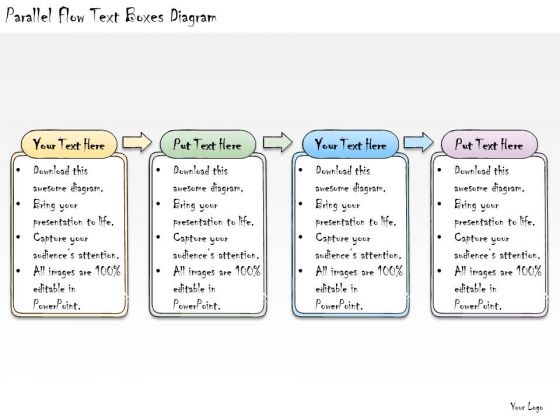 Parallel Flow Text Boxes Diagram
Your Text Here
• Download this
awesome diagram.
• Bring your
presentation to life.
• Capture your
audience's attention.
• All images are 100%
editable in
PowerPoint.
Put Text Here
• Download this
awesome diagram.
• Bring your
presentation to life.
• Capture your
audience's attention.
• All images are 100%
editable in
PowerPoint.
Your Text Here
• Download this
awesome diagram.
• Bring your
presentation to life.
• Capture your
audience's attention.
• All images are 100%
editable in
PowerPoint.
Put Text Here
• Download this
awesome diagram.
• Bring your
presentation to life.
• Capture your
audience's attention.
• All images are 100%
editable in
PowerPoint.
Your Logo